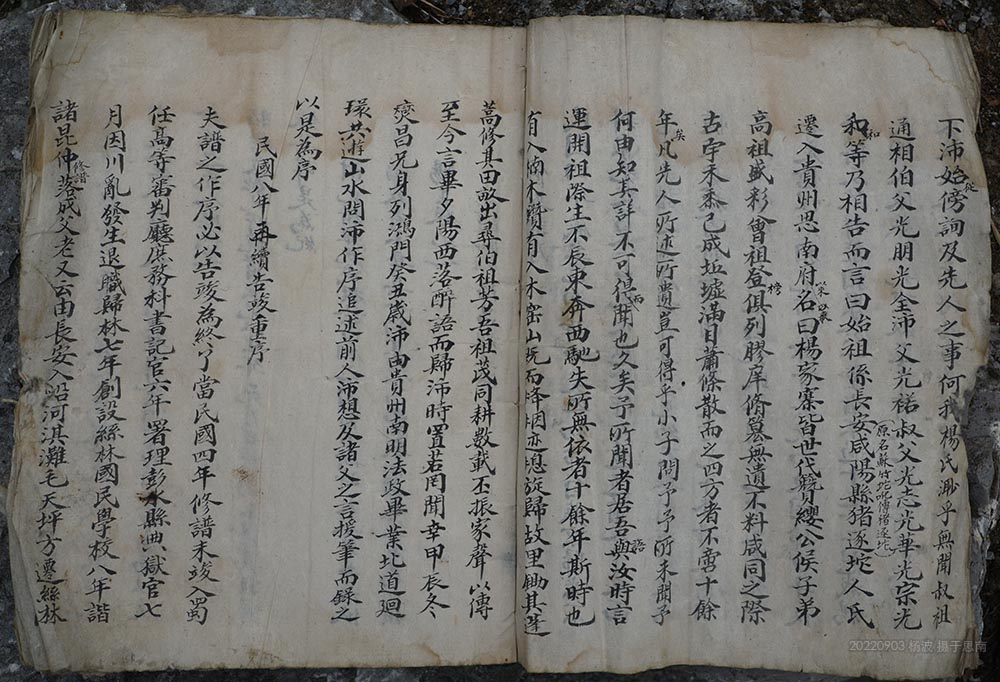 下沛始傍詢及先人之事何我楊氏渺乎無聞叔祖
從
通相伯父光朋光全沛父光褚叔父光志光華光宗光
和等乃相告而言曰始祖係長安咸陽縣猪逐坨人氏
和
原名蘇竹坨吡傳猪逐坨
遷入貴州思南府名曰楊家寨皆世代簪纓公侯子弟
高祖盛彩會祖登俱列膠庠脩篡無遺不料咸同之際
榜
古宇未黍已成坵墟滿目蕭條散而之四方者不啻十餘
年凡先人所述所遺豈可得乎小子問予予所未聞予
矣
何由知其詳不可得聞也久矣予所聞者居吾與汝時言
而
語
運開祖際生不辰東奔西馳失所無依者十餘年斯時也
有入楠木躦有入木窑山既而烽烟亦熄旋歸故里鋤其蓬
蒿修其田畝出尋伯祖芳吾祖茂同耕數載丕振家聲以傳
至今言畢夕陽西落酧詺而歸沛時置若罔聞幸甲辰冬
爕昌兄身列鴻門癸丑歲沛由貴州南明法政畢業北道廻
環共遊山水問沛作序追述前人沛想及諸父之言援筆而錄之
以是為序
民國八年再續告竣重序
夫譜之作序必以告竣為終了當民國四年修譜未竣入蜀
任高等審判廳庶務科書記官六年署理彭水縣典獄官七
月因川亂發生退職歸林七年創設絲林國民學校八年諧
諸昆仲落成父老又云由長安入沿河淇灘毛天坪方遷絲林
修譜
20220903 杨波 摄于思南